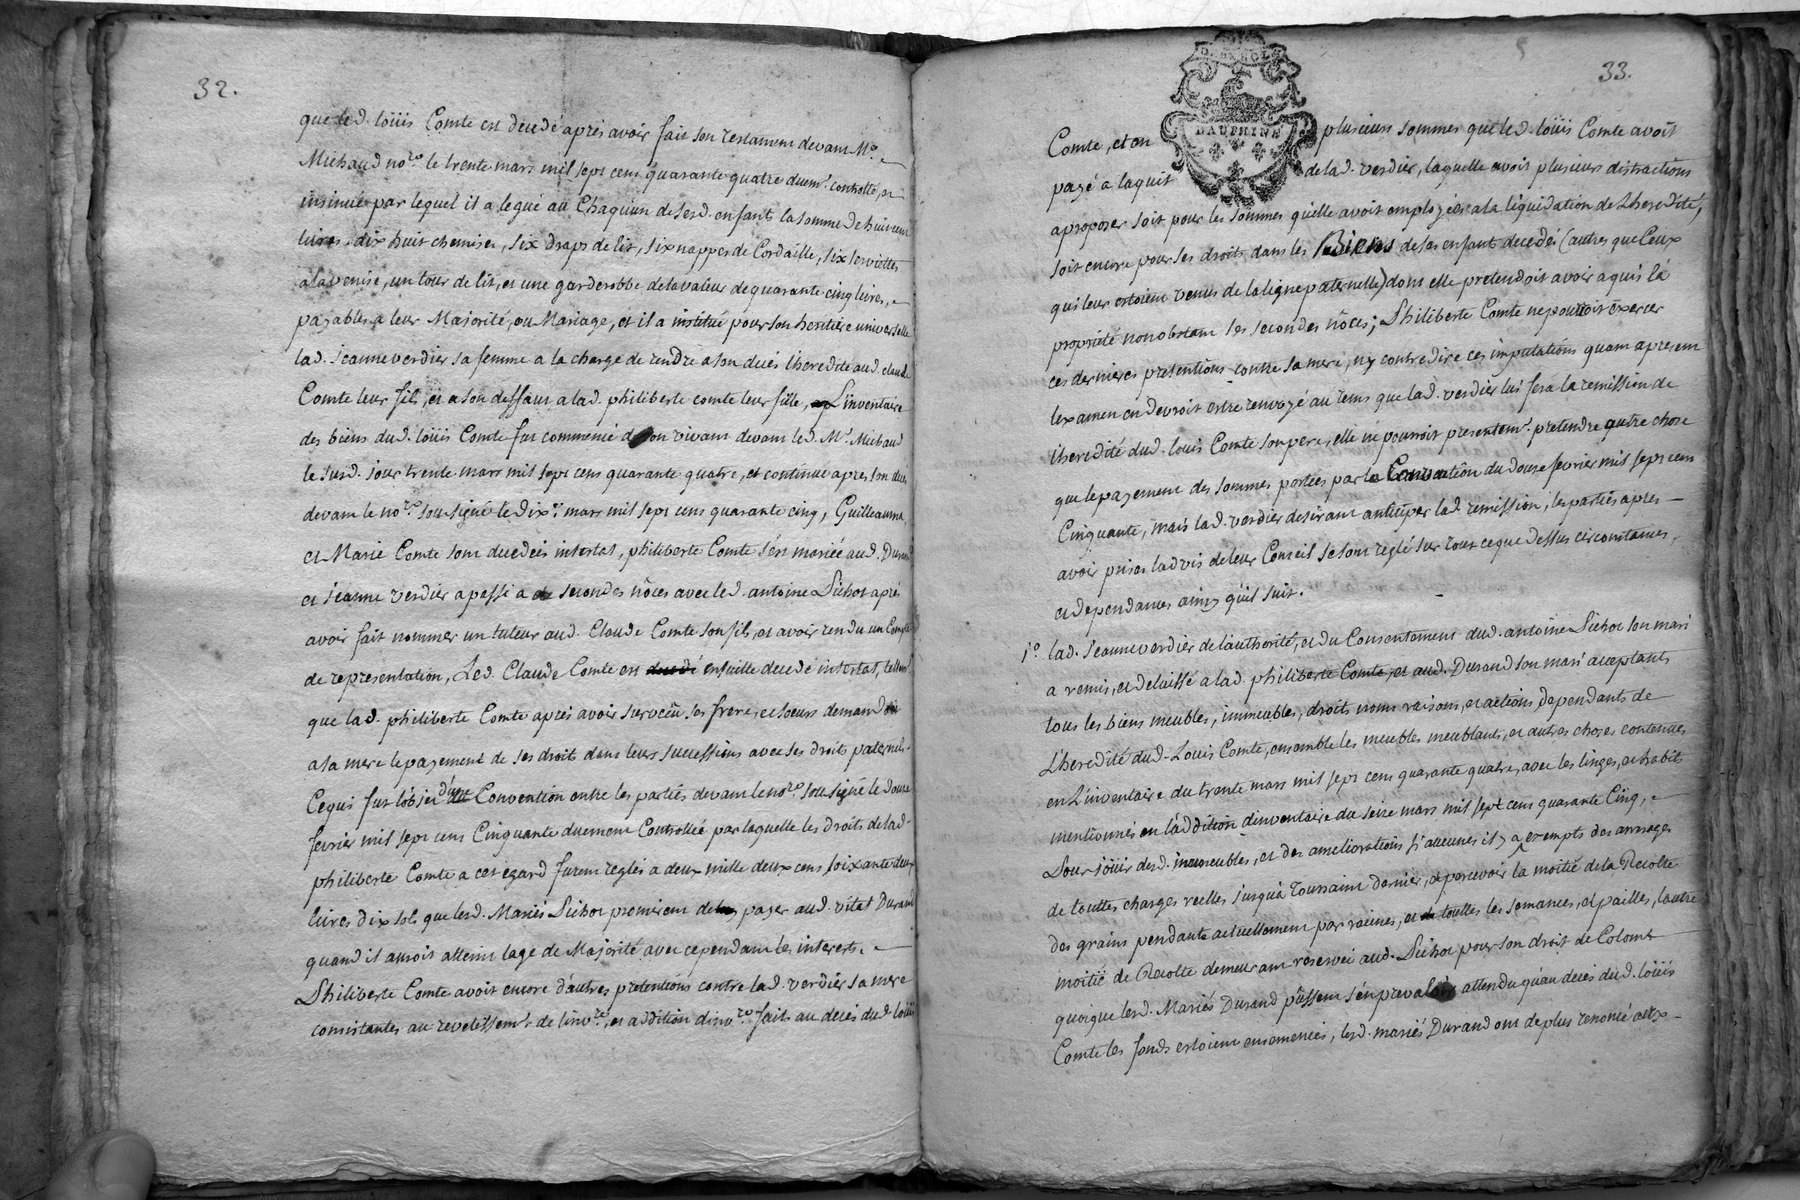 32.
que led. loüis Comte est decedé aprés avoir fait son testament devant Me.
Michaud nore. le trente mars mil sept cent quarante quatre duemt. controllé, et
insinué par lequel il a legué au Chaquun de sesd. enfants la somme de huit cent
livres dix huit chemises, six draps de lit, six nappes de Cordaille, six serviettes
a la venise, un tour de lit, et une garderobbe de la valeur de quarante cinq livres,
payables a leur Majorité, ou Mariage, et il a institué pour son heritiere universelle
lad. jeanne verdier sa femme a la charge de rendre a son decés l'heredité aud. claude
Comte leur fils, et a son deffaut a lad. philiberte comte leur fille, L'inventaire
des biens dud. loüis Comte fut commencé de son vivant devant led. Me. Michaud
le susd. jour trente mars mil sept cens quarante quatre, et continué apres son deces
devant le nore. soussigné le dixe. mars mil sept cens quarante cinq, Guilleaume,
et Marie Comte sont decedés intestat, philiberte Comte s'est mariée aud. Durand
et jeanne verdier a passé a de secondes nôces avec led. antoine Pichot aprés
avoir fait nommer un tuteur aud. Claude Comte son fils, et avoir rendu un Compte
de representation, Led. Claude Comte est decedé ensuitte decedé intestat, tellemt.
que lad. philiberte Comte aprés avoir survecû ses frere, et soeurs demandoit
a sa mere le payement de ses droit dans leurs successions avec ses droits paternels.
Ce qui fut l'objet d'une Convention entre les partiés devant le nore. soussigné le douze
fevrier mil sept cens Cinquante duement Controllée par laquelle les droits de lad.
philiberte Comte a cet egard furent reglés a deux mille deux cens soixante deux
livres dix sols que lesd. Mariés Pichot promirent de payer aud. vital Durand
quand il auroit atteint lage de Majorité avec cependant les interests.
Philiberte Comte avoit encore d'autres pretentions contre lad. verdier sa mere
consistantes au revetissemt. de l'invre., et addition d'invre. faits au decés dud. loüis
33.
DAUPHINE
Comte, et en plusieurs sommes que led. loüis Comte avoit
payé a laquit de lad. verdier, laquelle avoit plusieurs distractions
a proposer soit pour les sommes qu'elle avoit employées a la liquidation de L'heredité,
soit encore pour ses droits dans les Biens de ses enfant decedés (autres que Ceux
qui leur estoient venus de la ligne paternelle) dont elle pretendoit avoir aquis la
propriété nonobstant ses secondes nôces; Philiberte Comte ne pouvoit exercer
ces dernieres pretentions contre sa mere, ny contredire ces imputations quant a present
l'examen en devroit estre renvoyé au tems que lad. verdier lui fera la remission de
l'heredité dud. loüis Comte son pere, elle ne pouvoit presentemt. pretendre autre chose
que le payement des sommes portées par la Convention du douze fevrier mil sept cens
Cinquante, mais lad. verdier desirant anticiper lad. remission, les partiés apres
avoir pris l'advis de leur Conseil se sont reglé sur tout ce que dessus circonstances,
et dependances ainsy qu'il suit.
1o. lad. jeanne verdier de l'authorité, et du Consentement dud. antoine Pichot son mari
a remis, et delaissé a lad. philiberte Comte, et aud. Durand son mari acceptants
tous les biens meubles, immeubles, droits noms raisons, et actions dependants de
L'heredité dud. Louis Comte, ensemble les meubles meublants, et autres choses contenues
en L'inventaire du trente mars mil sept cens quarante quatre, avec les linges, et habits
mentionnés en l'addition d'inventaire du seize mars mil sept cens quarante Cinq,
Pour joüir desd. immeubles, et des ameliorations s'y aucunes il y a exempts des arrerages
de touttes charges reelles jusqu'a Toussaint dernier, et percevoir la moitié de la Recolte
des grains pendants actuellement par racines, et de touttes les semances, et pailles, l'autre
moitié de Recolte demeurant reservée aud. Pichot pour son droit de Colons
quoique lesd. Mariés Durand pûssent s'en prevaloir attendu qu'au decés dud. loüis
Comte les fonds estoient ensemencés, lesd. mariés Durand ont de plus renoncé aux